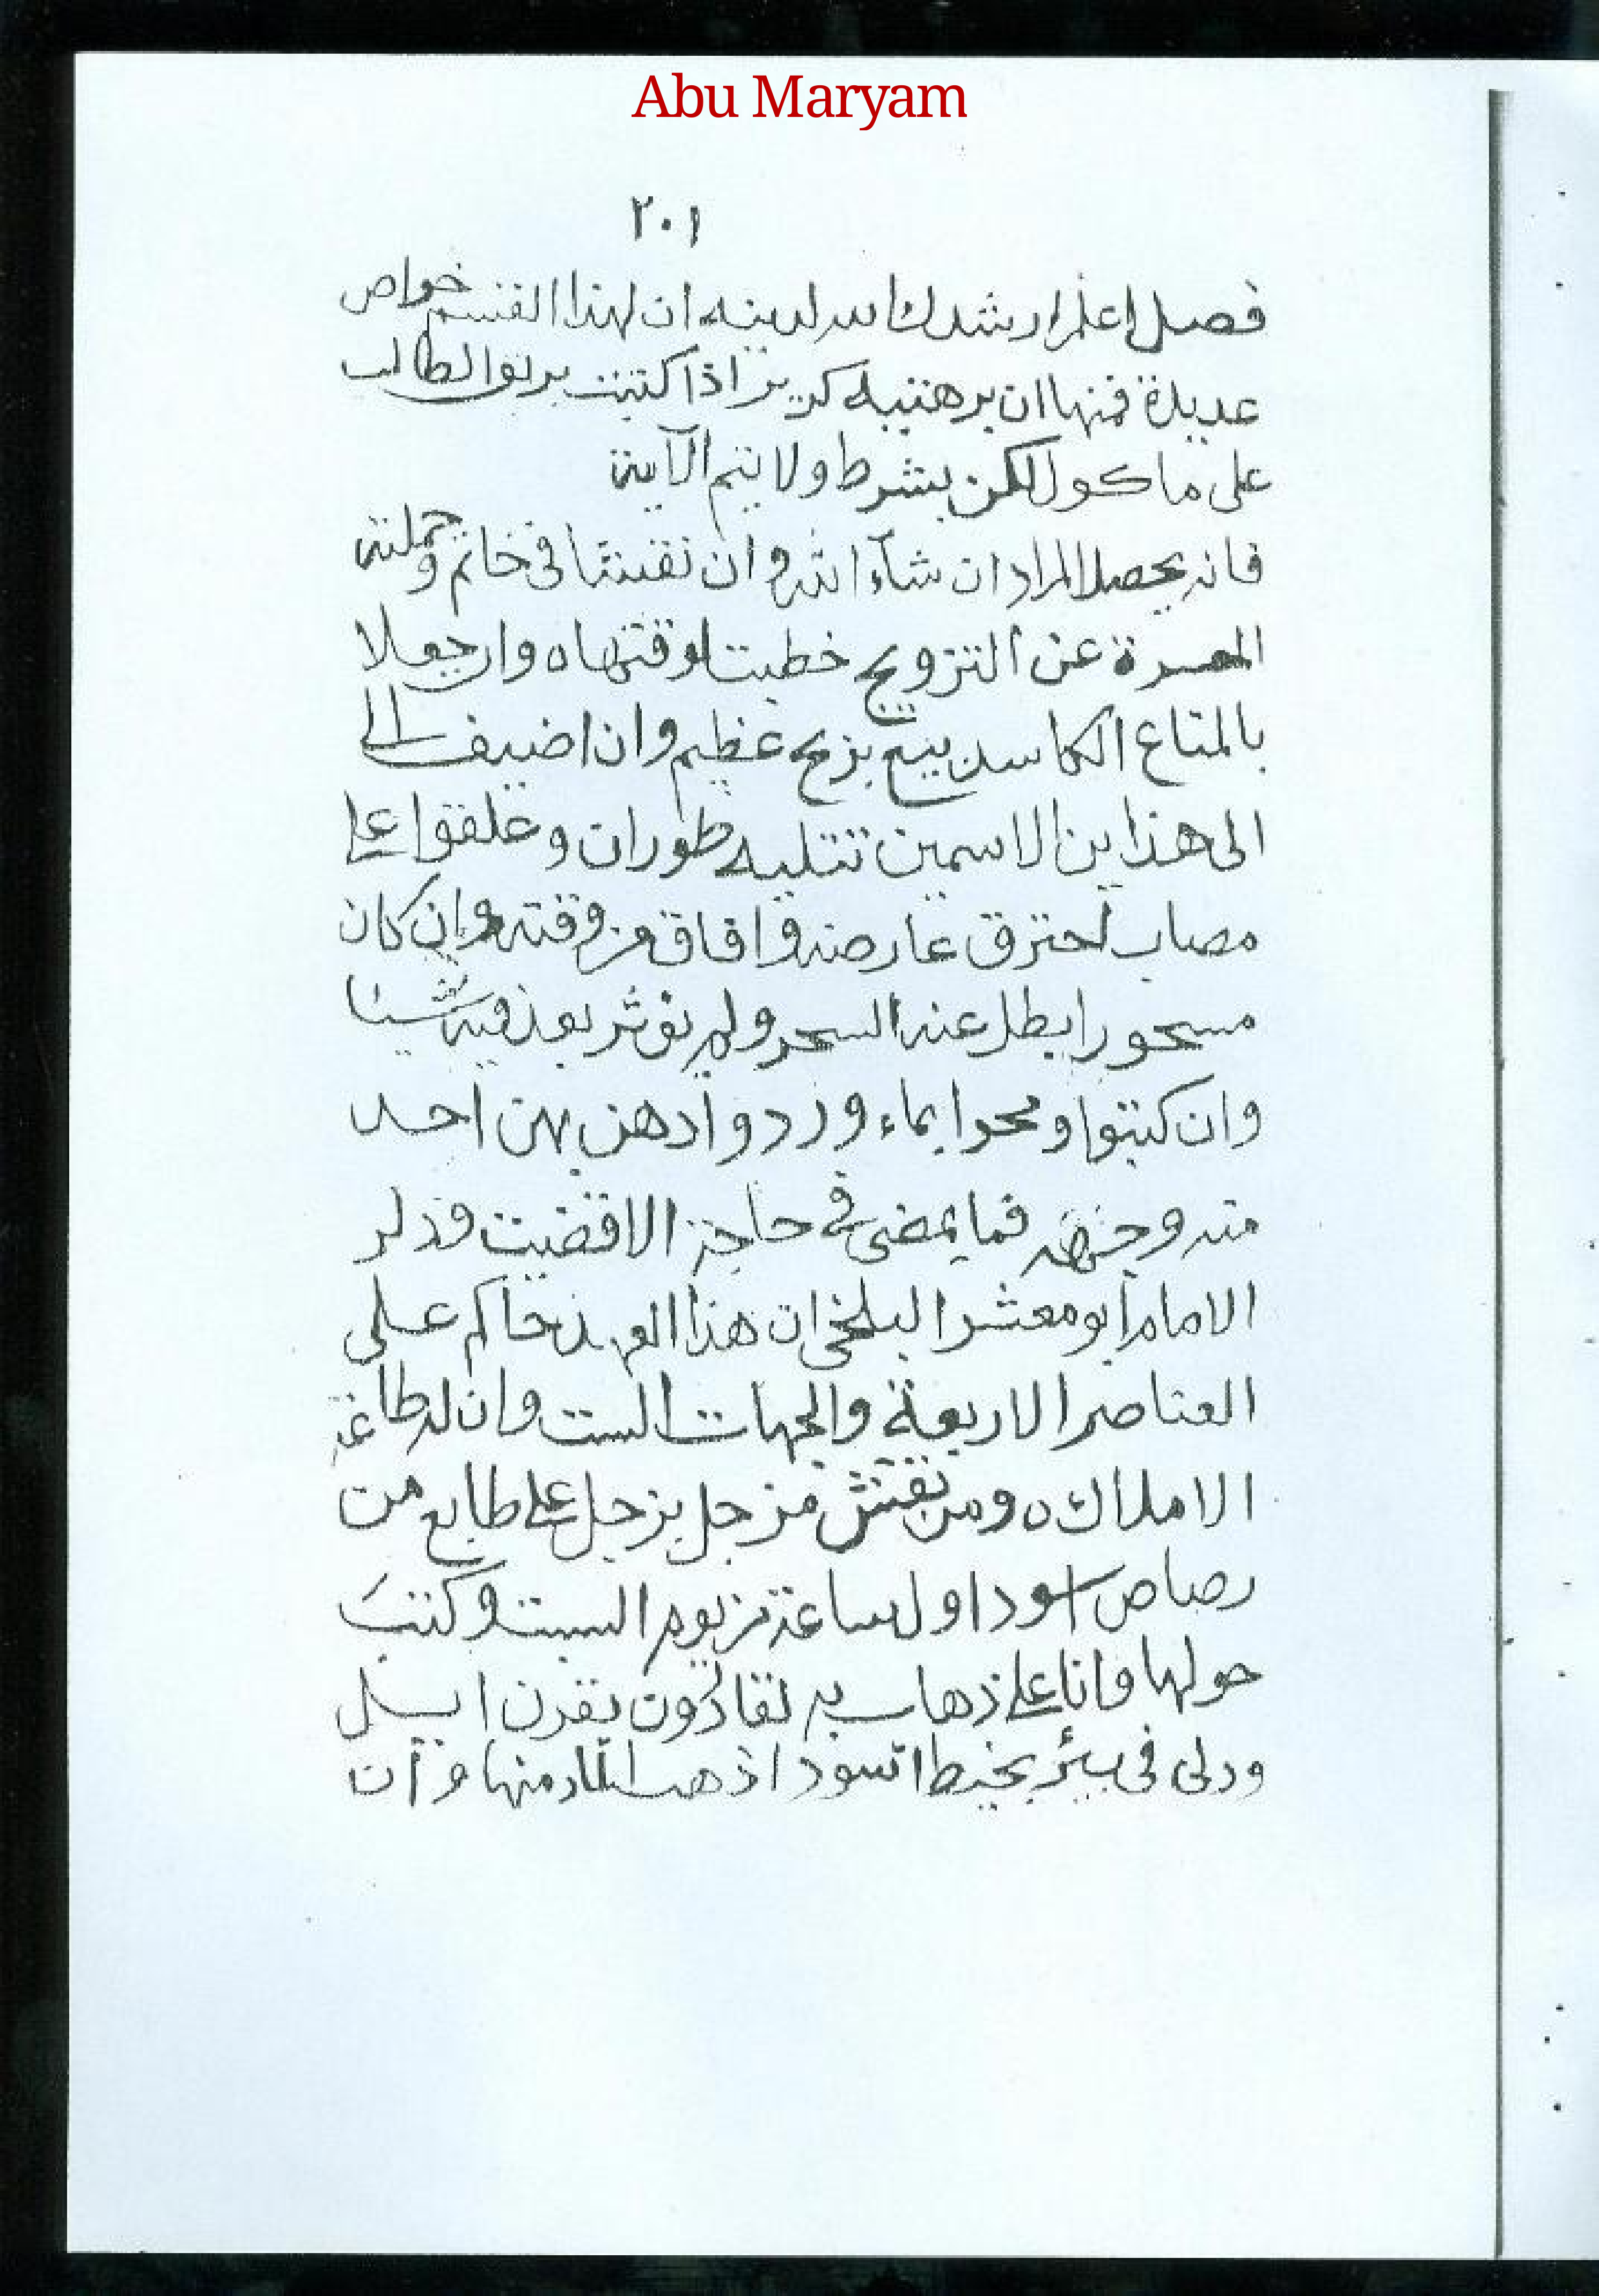 Abu Maryam
٢٠١
فصل اعلم ارشدك الله لدينه ان لهذا القسم خواص
عديدة فمنها ان برهتيه كرير اذا كتبت بريق الطالب
على ماكول لكن بشرط ولا يتم الآية
فانه يحصل المراد ان شاء الله وان نقشا في خاتم وحملته
المعسرة عن التزويج خطبت لوقتها ه وان جعلا
بالمتاع الكاسد بيع بربح عظيم وان اضيف الى
الى هذاين الاسمين تتليه طوران وعلقوا على
مصاب احترق عارضه وافاق من وقته وان كان
مسحورا بطل عنه السحر ولم يؤثر بعد فيه شيئا
وان كتبوا ومحوا بماء ورد وادهن بهن احد
منه وجهه فما يمضى في حاجة الا قضيت وذكر
الامام ابو معشر البلخي ان هذا العهد حاكم على
العناصر الاربعة والجهات الست وان له طاعة
الاملاك ه ومن نقش مزجل بزجل على طابع من
رصاص اسود اول ساعة من يوم السبت وكتب
حولها وانا على ذهاب به لقادرون بقرن ايل
ودلى في بئر بخيط اسود اذهب الماء منها وان